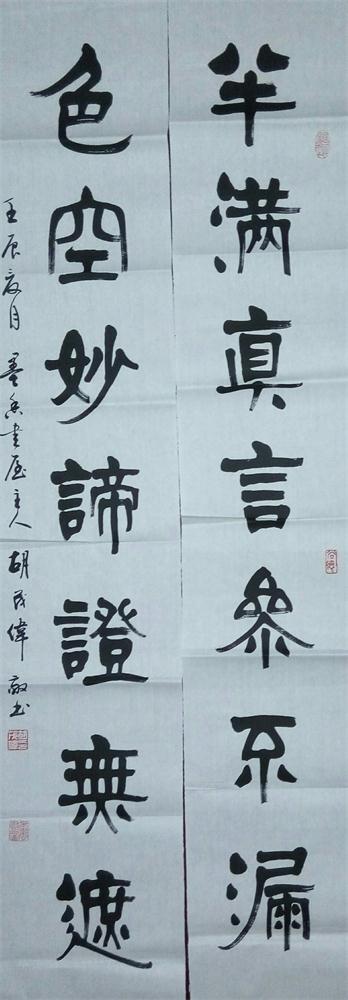 半满真言参不漏
色空妙諦證無遮
壬辰夏月 墨香書屋主人 胡民偉 敬书